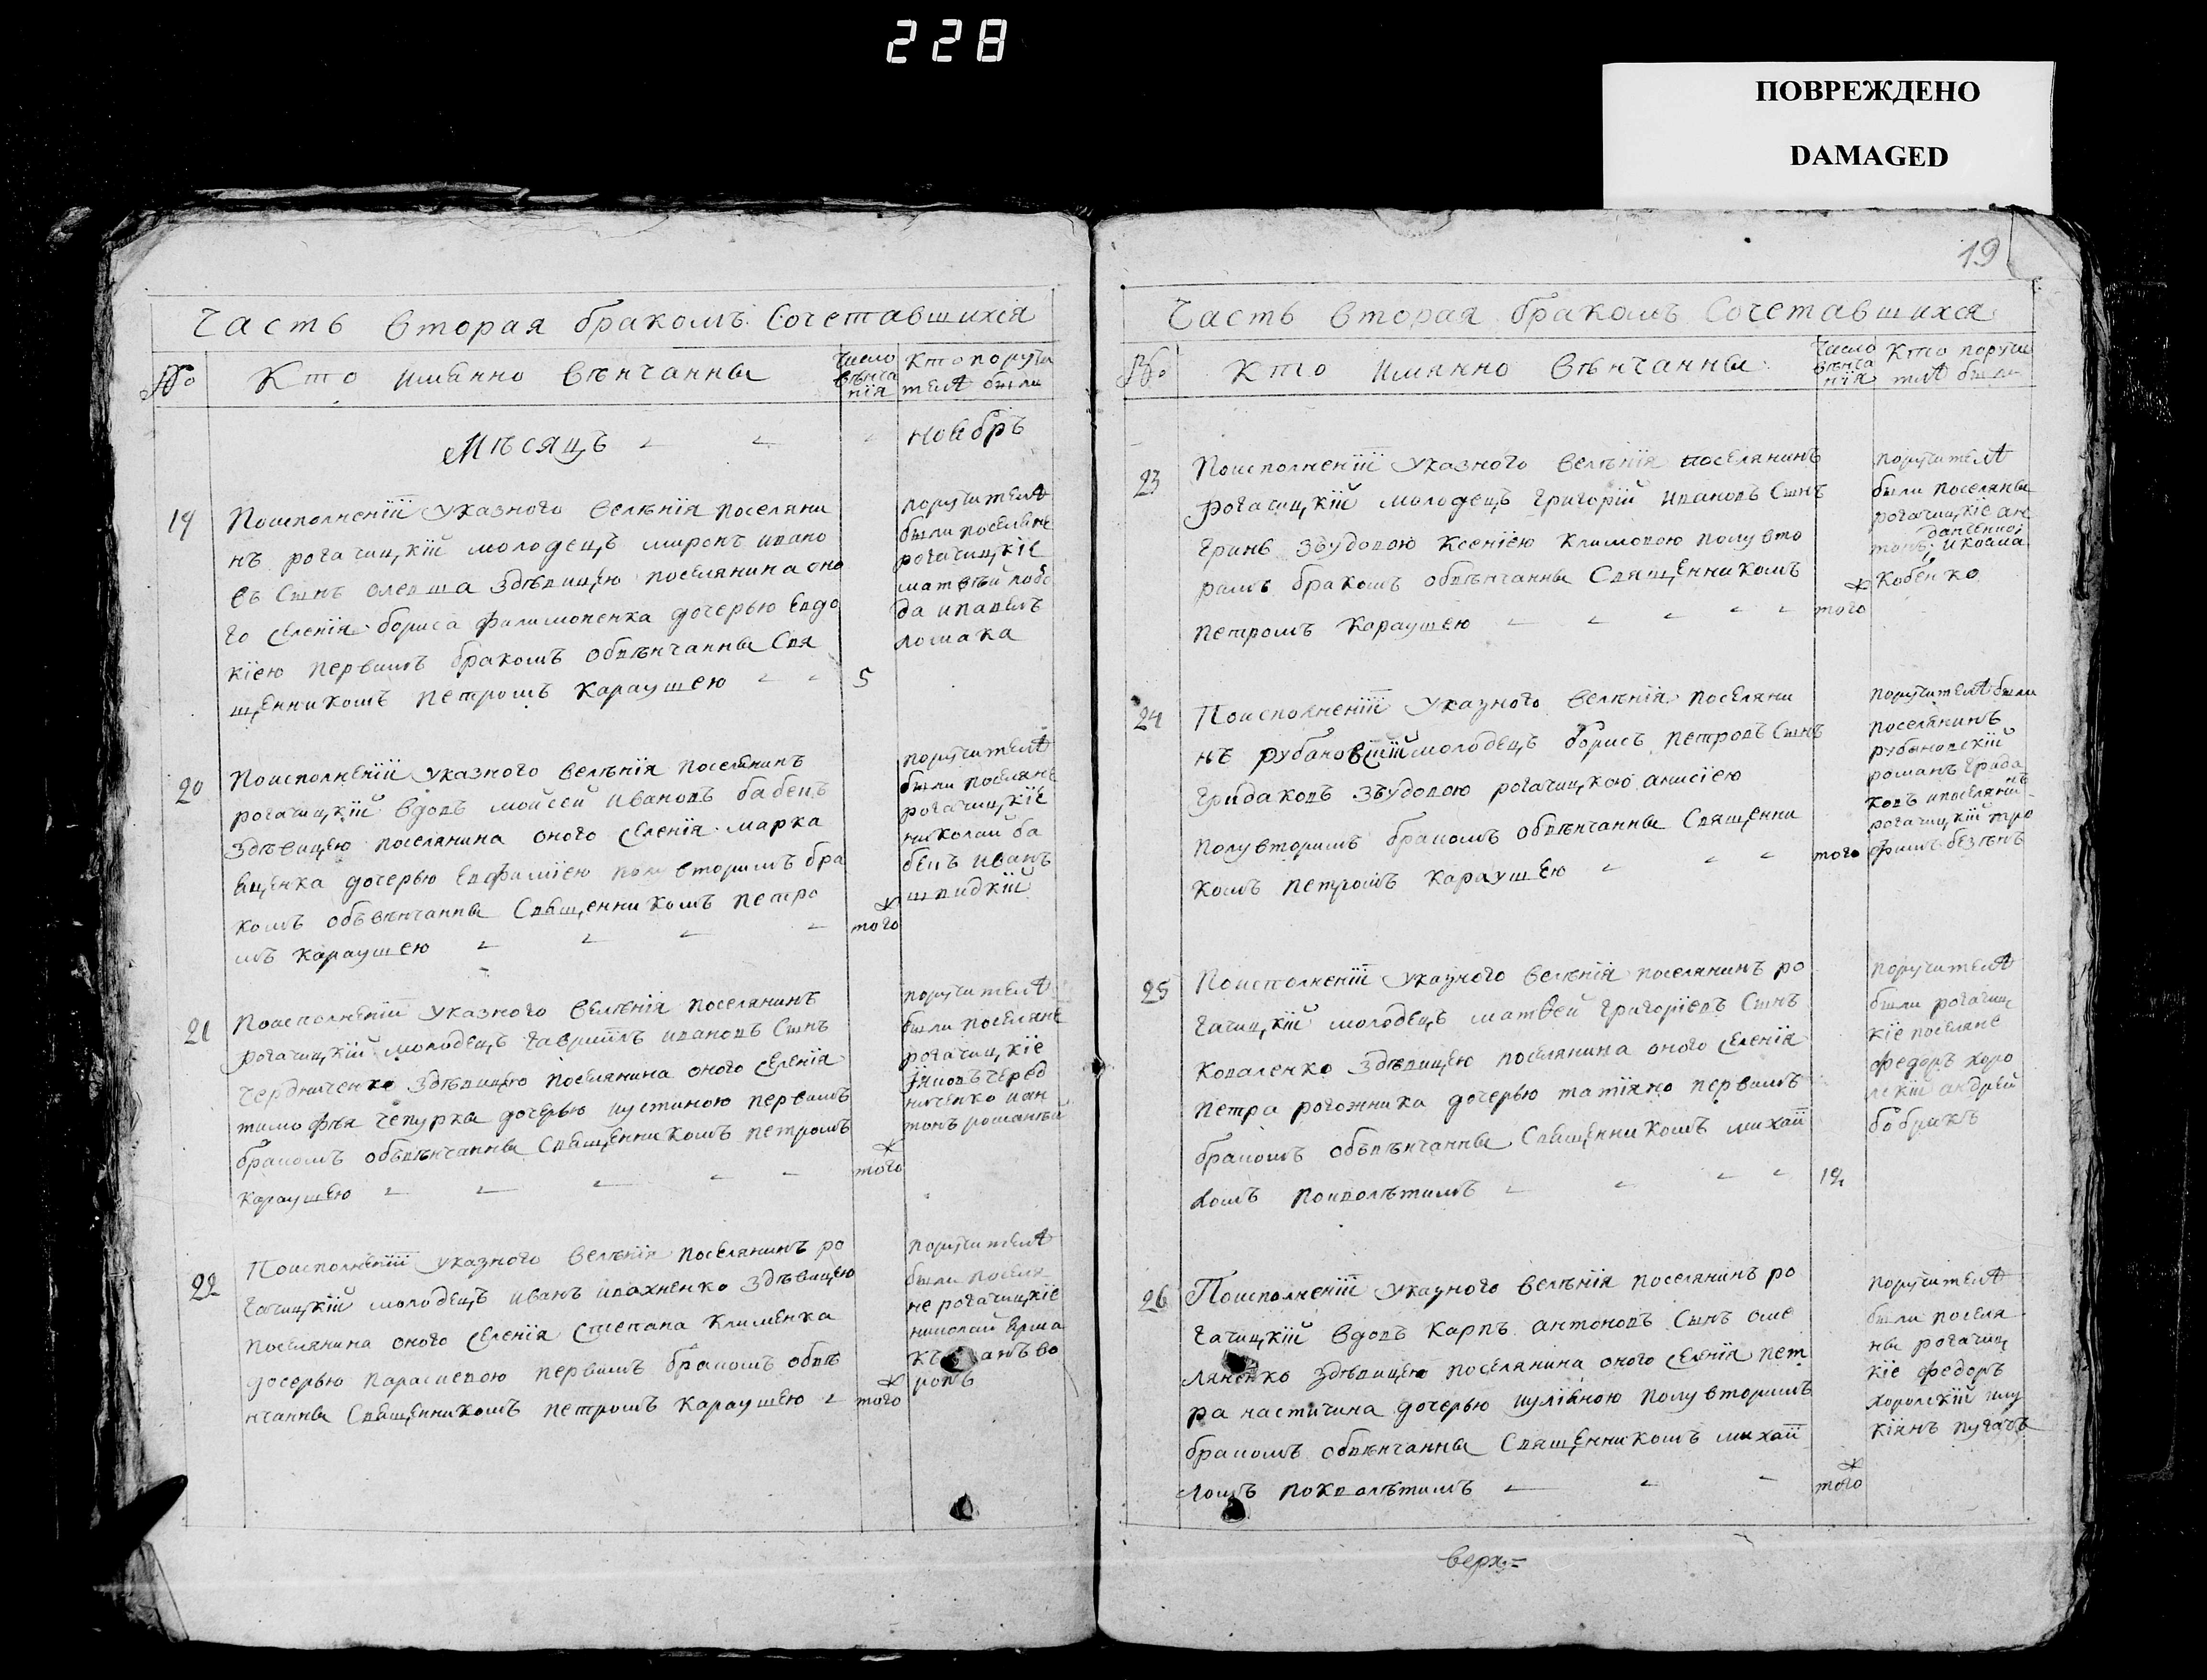 228
ПОВРЕЖДЕНО
DAMAGED
Часть вторая бракомъ Сочетавшихся
№
Кто имянно вѣнчанны
Число вѣнчанія
Кто поручителѣ были
Мѣсяцъ
ноябрь
19
Поисполненіи указного велѣнія поселяни
нъ рогачицкій молодецъ миронъ ивано
въ сынъ олевша здѣвицею поселянина оно
го селенія бориса филимоненка дочерью Евдо
кіею первымъ бракомъ обвѣнчанны Свя
щенникомъ Петромъ Караушею
5
поручителѣ
были поселяне
рогачицкіе
матвѣй лобо
да ипавелъ
лошака
20
Поисполненіи указного велѣнія поселянинъ
рогачицкій вдовъ мойсей ивановъ бабенъ
здѣвицею поселянина оного селенія марка
дочерью Евфиміею полувторимъ бра
комъ объвѣнчанны Священникомъ петро
мъ Караушею
того
поручителѣ
были поселяне
рогачицкіе
николай ба
бенъ иванъ
швидкій
21
Поисполненіи указного велѣнія поселянинъ
рогачицкій молодецъ гавріилъ ивановъ Сынъ
чередниченко здѣвицею поселянина оного селенія
тимофѣя чепурка дочерью иустиною первимъ
бракомъ объвѣнчанны Священникомъ петромъ
Караушею
того
поручителѣ
были поселяне
рогачицкіе
черед
ниченко иан
тонъ
22
Поисполненіи указного велѣнія поселянинъ ро
гачицкій молодецъ иванъ ивахненко здѣвицею
поселянина оного селенія Степана Клименка
дочерью параскевою первимъ бракомъ обвѣ
нчанны Священникомъ петромъ Караушею
того
поручителѣ
были поселя
не рогачицкіе
николай Ерма
19
Часть вторая бракомъ Сочетавшихся
№
Кто имянно вѣнчанны
Число вѣнчанія
Кто поручителѣ были
23
Поисполненіи указного велѣнія поселянинъ
рогачицкій молодецъ григорій ивановъ Сынъ
гринь зъудовою Ксеніею Климовою полувто
римъ бракомъ обвѣнчанны Священникомъ
петромъ Караушею
того
поручителѣ
были поселяны
рогачицкіе ан
тонъ
икосма
Кобенко
24
Поисполненіи указного велѣнія поселяни
нъ рубановскій молодецъ борисъ петровъ Сынъ
гридаковъ зъудовою рогачицкою анисіею
полувторимъ бракомъ обвѣнчанны Священни
комъ петромъ Караушею
того
поручителѣ были
поселянинъ
рубановскій
романъ грида
ковъ ипоселянинъ
рогачицкій тро
фимъ
25
Поисполненіи указного велѣнія поселянинъ ро
гачицкій молодецъ матвей григоріевъ Сынъ
Коваленко здѣвицею поселянина оного селенія
Петра рогожника дочерью татіяно первимъ
бракомъ объвѣнчанны Священникомъ михаи
ломъ
поручителѣ
были рогачиц
кіе поселяне
федоръ хоро
лскій андрей
бобракъ
26
Поисполненіи указного велѣнія поселянинъ ро
гачицкій вдовъ Карпъ антоновъ Сынъ оме
ляненко здѣвицею поселянина оного селенія пет
ра дочерью иуліяною полувторимъ
бракомъ обвѣнчанны Священникомъ михаи
ломъ
того
поручителѣ
были поселя
ны рогачиц
кіе федоръ
хоролскій илу
кіянъ пугачъ
верх=